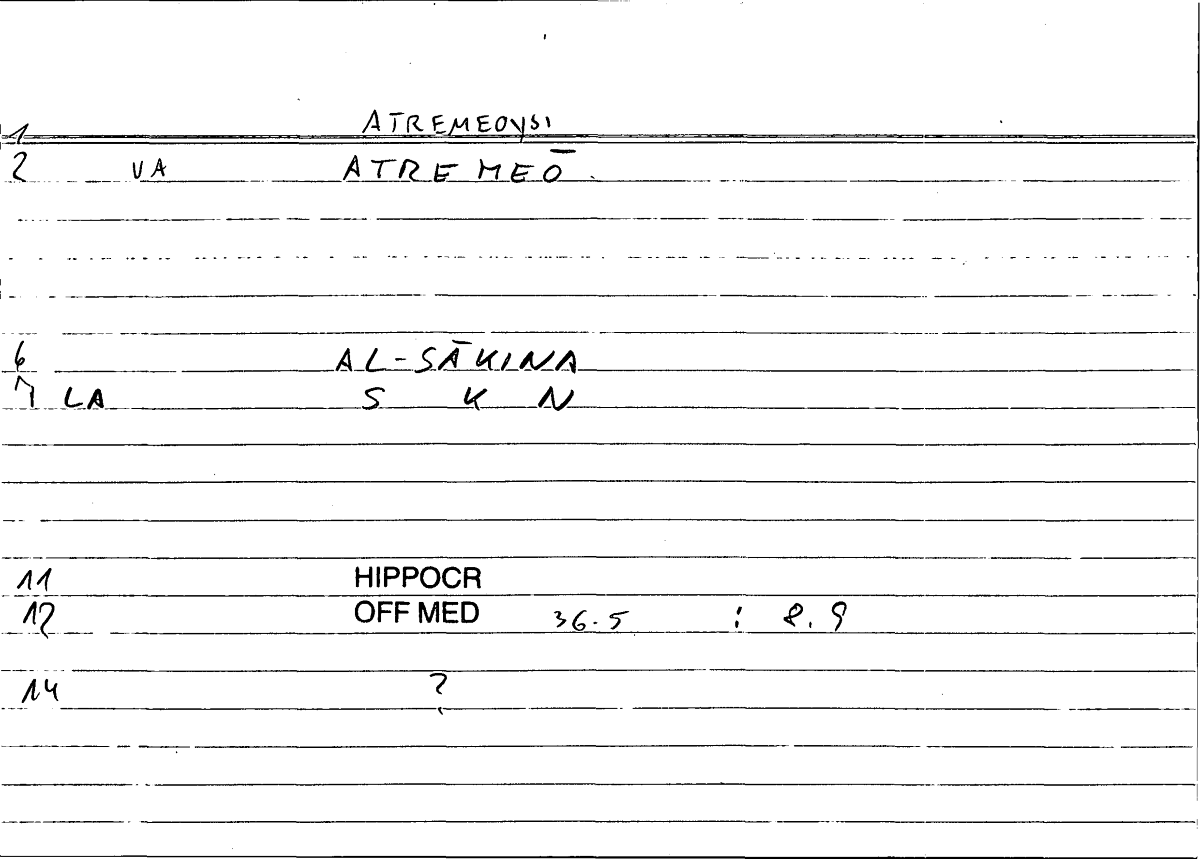 1 ATREMEOYSI
2 VA ATREMEŌ
6 AL-SĀKINA
7 LA S K N
11 HIPPOCR
12 OFF MED 36.5 : 8.9
14 ?